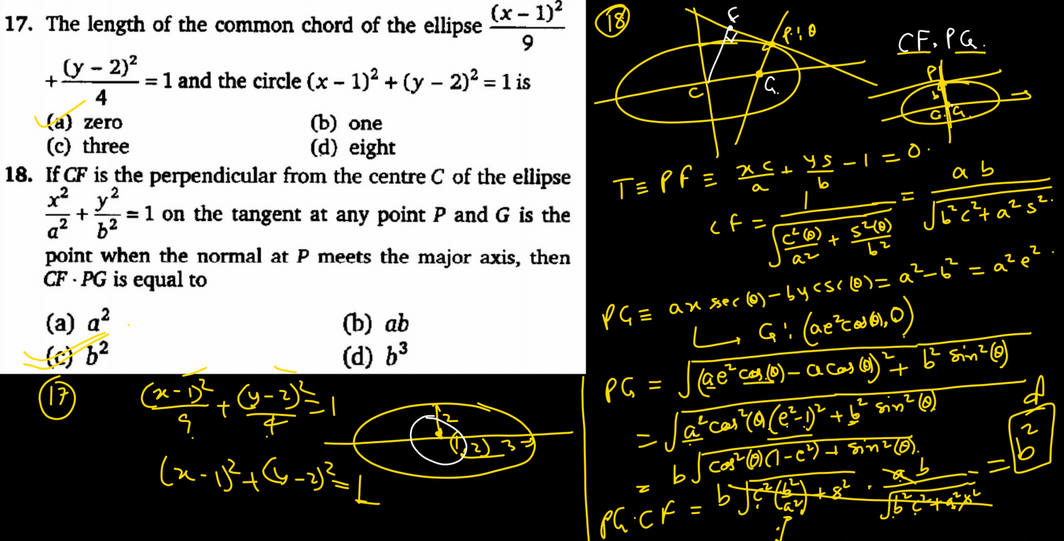 17. The length of the common chord of the ellipse (x – 1)²/9
+ (y – 2)²/4 = 1 and the circle (x – 1)² + (y – 2)² = 1 is
(a) zero (b) one
(c) three (d) eight
18. If CF is the perpendicular from the centre C of the ellipse
x²/a² + y²/b² = 1 on the tangent at any point P and G is the
point when the normal at P meets the major axis, then
CF · PG is equal to
(a) a² (b) ab
(c) b² (d) b³
(17) (x-1)²/9 + (y-2)²/4 = 1
(x-1)² + (y-2)² = 1
2
(1,2) 3
(18)
F
P: θ
C
G
CF. PG.
P
b
C G
T ≡ PF ≡ xc/a + ys/b - 1 = 0.
CF = 1/√(c²(θ)/a² + s²(θ)/b²) = ab/√(b²c² + a²s²)
PG ≡ ax sec(θ) - by csc(θ) = a² - b² = a²e².
G: (ae²cos(θ), 0)
PG = √((ae²cos(θ) - a cos(θ))² + b² sin²(θ))
= √(a²cos²(θ)(e²-1)² + b² sin²(θ))
= b√(cos²(θ)(1-e²) + sin²(θ)).
PG·CF = b√(c²(b²/a²) + s²) · ab/√(b²c² + a²s²) = b²